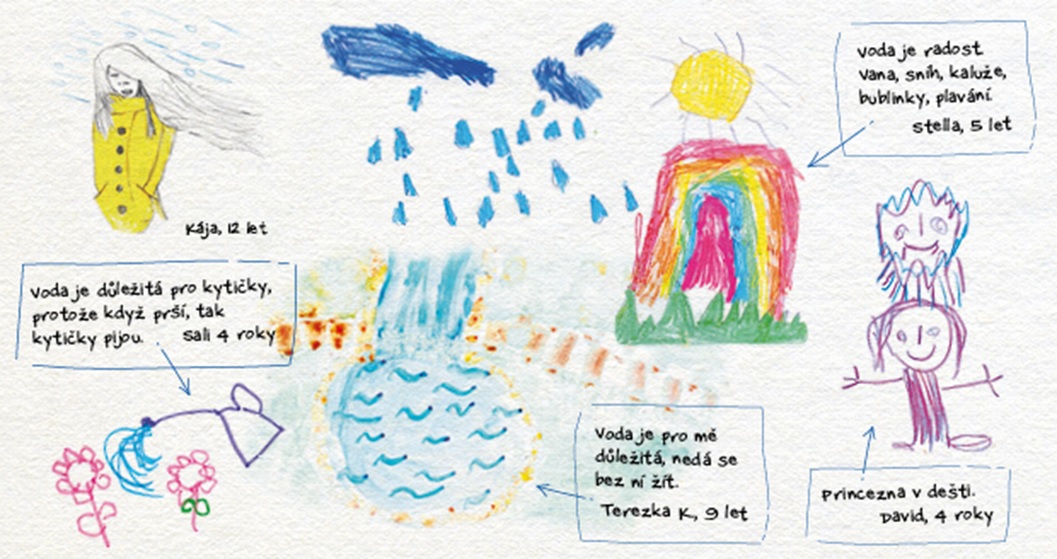 Voda je radost
Vana, sníh, kaluže,
bublinky, plavání.
Stella, 5 let
Kája, 12 let
Voda je důležitá pro kytičky,
protože když prší, tak
kytičky pijou.
Sali 4 roky
Voda je pro mě
důležitá, nedá se
bez ní žít.
Terezka K, 9 let
Princezna v dešti.
David, 4 roky